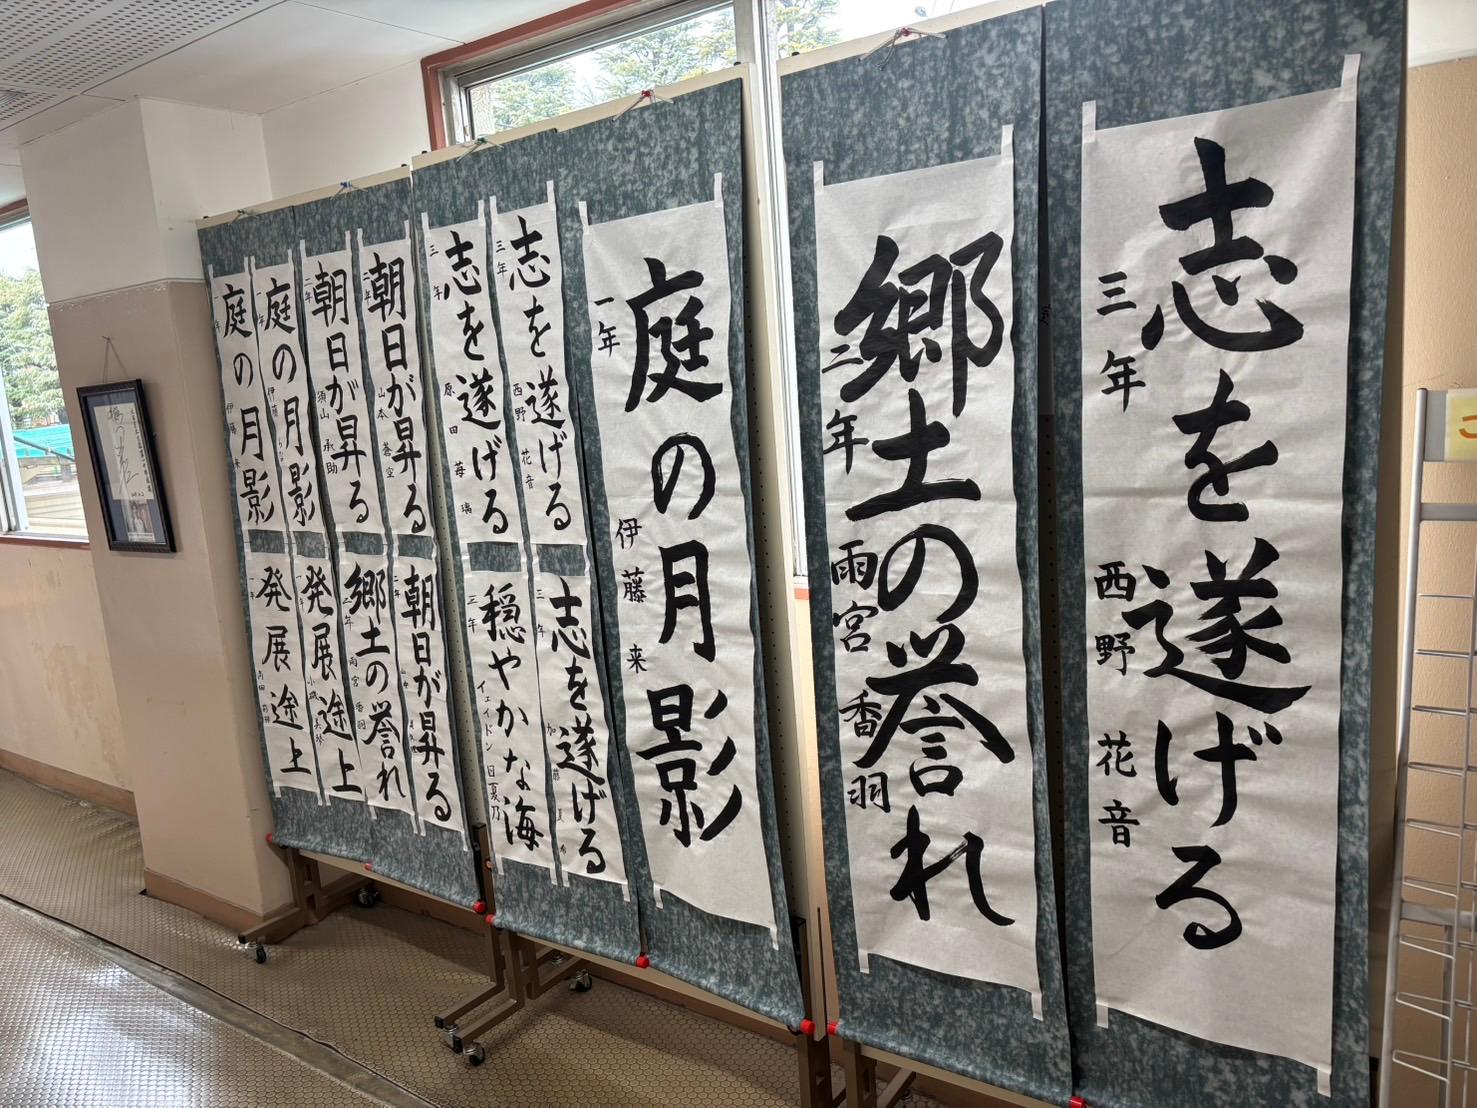 志を遂げる
三年 西野 花音
郷土の誉れ
二年 雨宮 香羽
庭の月影
一年 伊藤 来
志を遂げる
三年 西野 花音
志を遂げる
三年 原田 苺璃
朝日が昇る
二年 山本 蒼空
朝日が昇る
二年 須山 承助
庭の月影
一年 伊藤
庭の月影
一年 伊藤 来
志を遂げる
三年 加藤
穏やかな海
三年 イェイドン 日夏乃
朝日が昇る
二年
郷土の誉れ
二年 雨宮 香羽
発展途上
小城
発展途上
内田